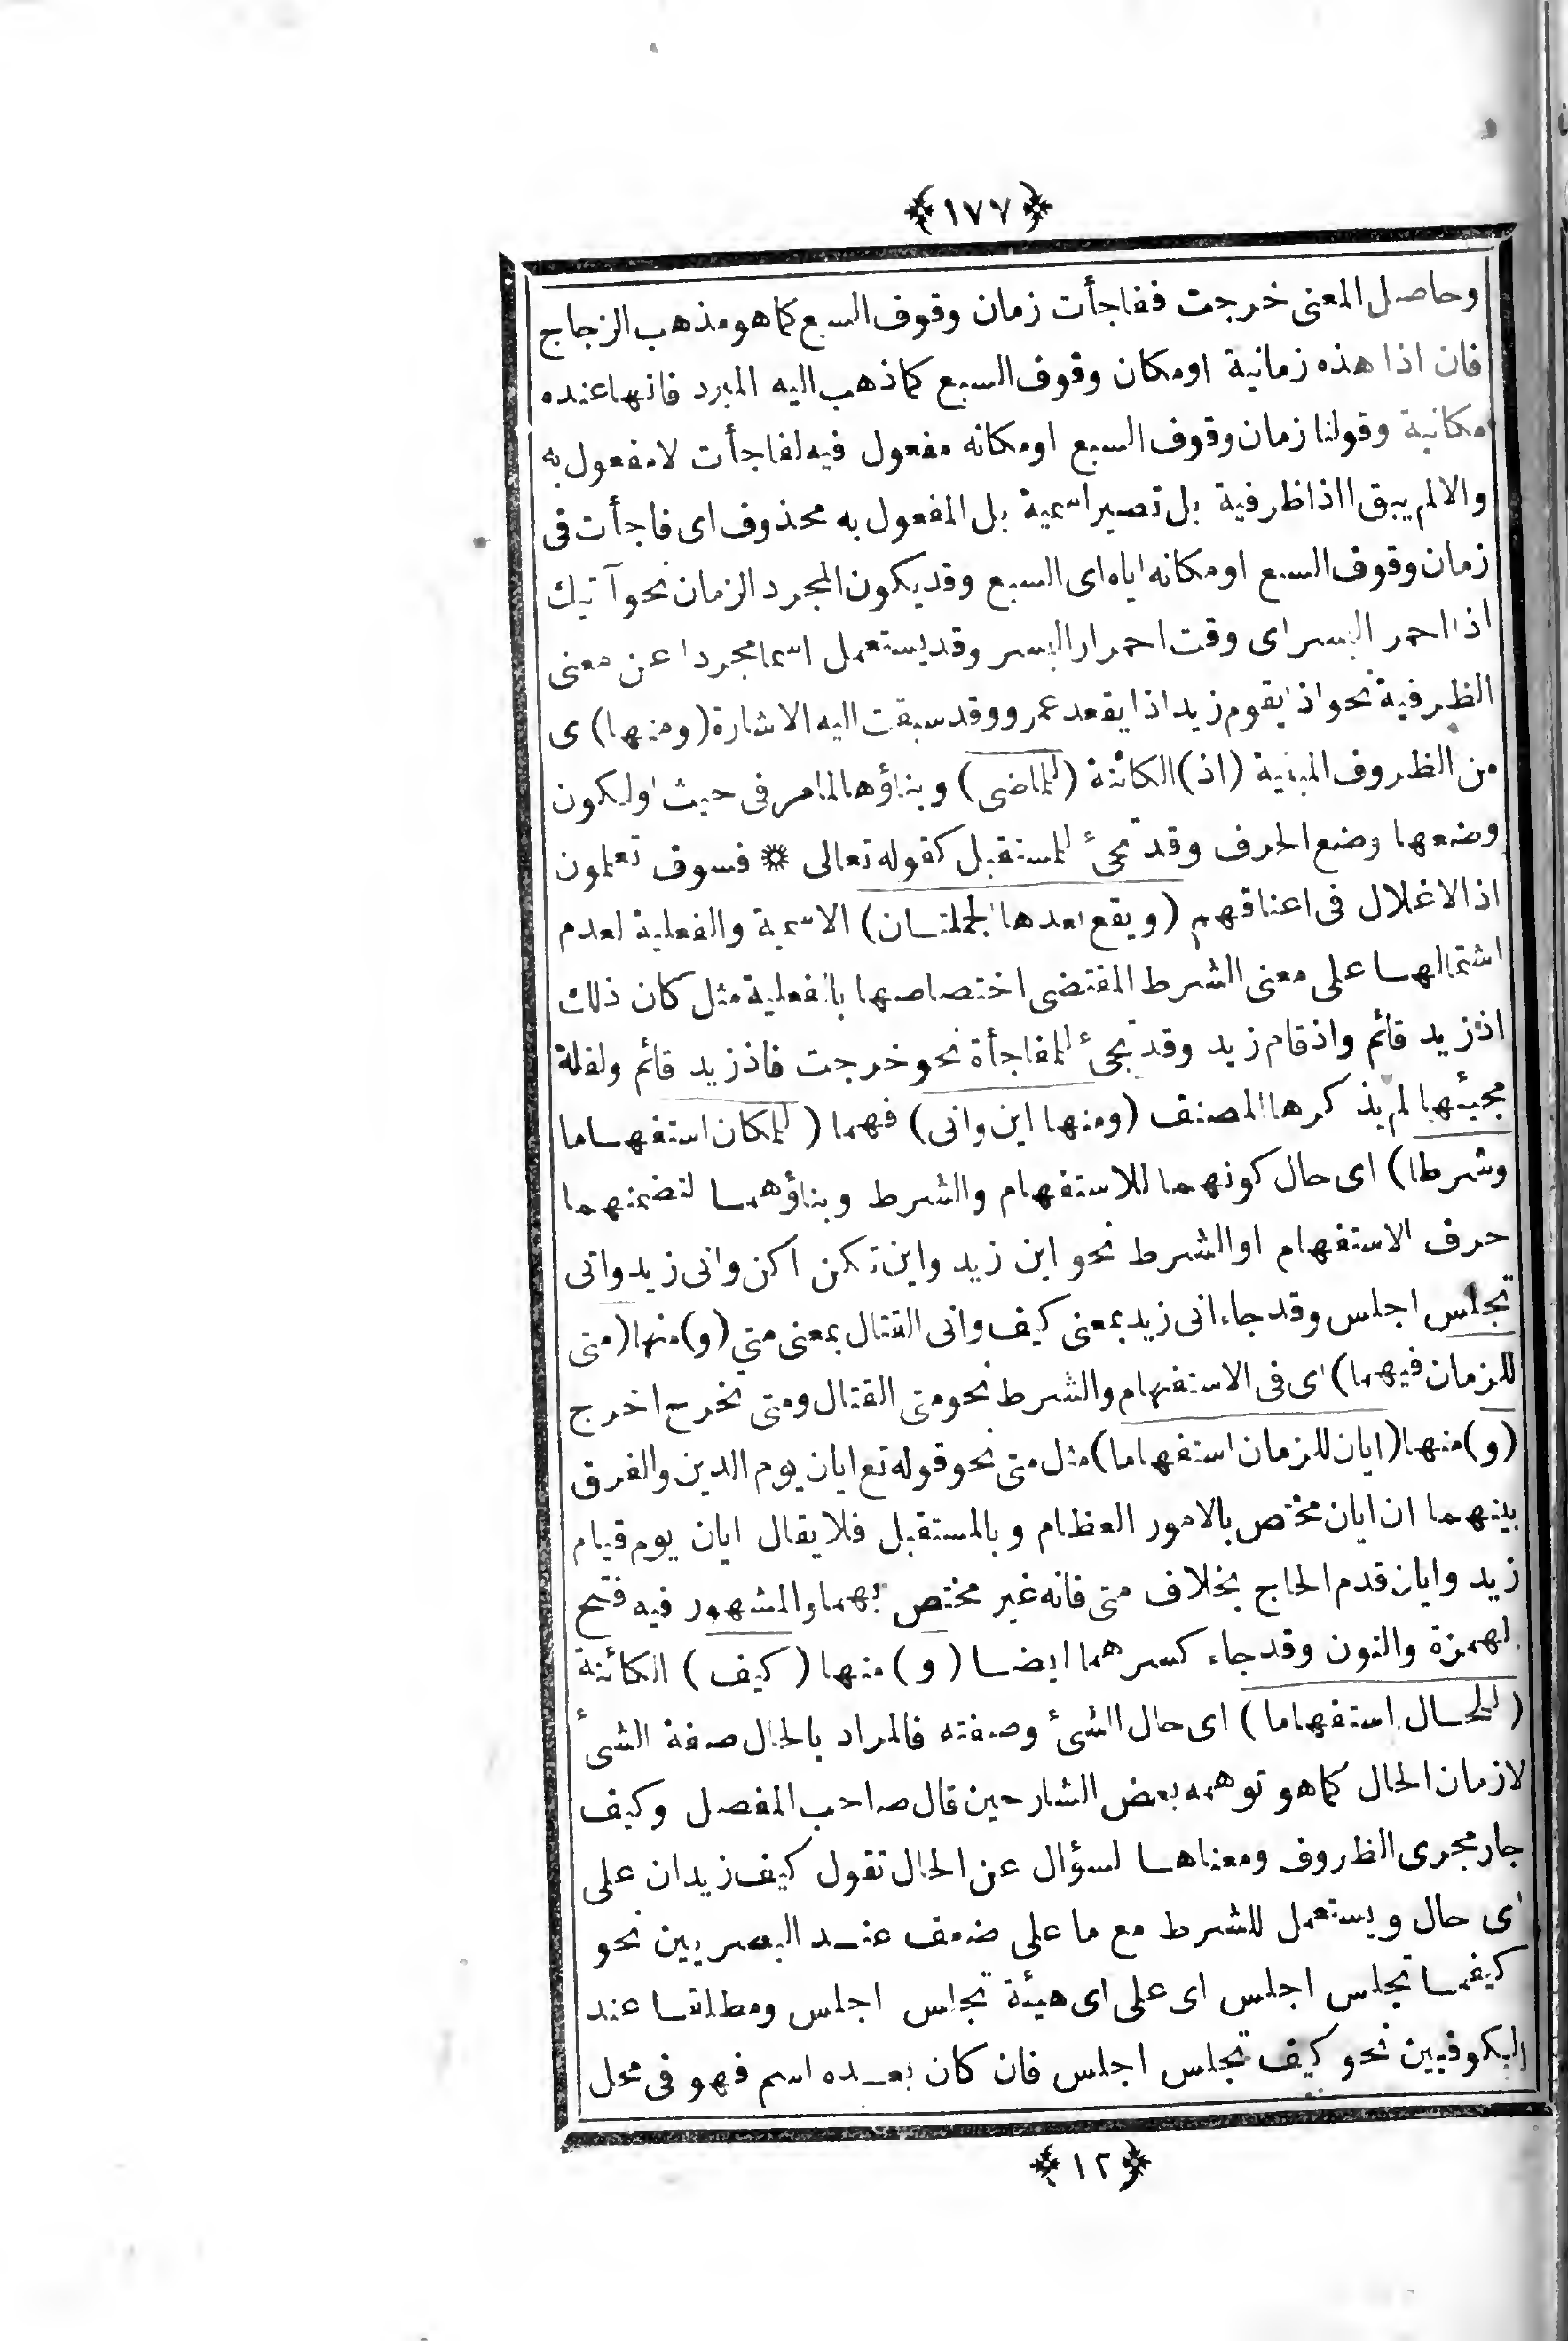 ﴿١٧٧﴾
وحاصل المعنى خرجت ففاجأت زمان وقوف السبع كما هو مذهب الزجاج
فان اذا هذه زمانية او مكان وقوف السبع كما ذهب اليه المبرد فانها عنده
مكانية وقولنا زمان وقوف السبع او مكانه مفعول فيه لفاجأت لا مفعول به
والا لم يبق اذا ظرفية بل تصير اسمية بل المفعول به محذوف اى فاجأت فى
زمان وقوف السبع او مكانه اياه اى السبع وقد يكون لمجرد الزمان نحو آتيك
اذا احمر البسر اى وقت احمرار البسر وقد يستعمل اسما مجردا عن معنى
الظرفية نحو اذا يقوم زيد اذا يقعد عمرو وقد سبقت اليه الاشارة (ومنها) ى
من الظروف المبنية (اذ) الكائنة (للماضى) وبناؤها لما مر فى حيث او لكون
وضعها وضع الحرف وقد تجىء للمستقبل كقوله تعالى ۞ فسوف تعلمون
اذ الاغلال فى اعناقهم (ويقع بعدها الجملتان) الاسمية والفعلية لعدم
اشتمالها على معنى الشرط المقتضى اختصاصها بالفعلية مثل كان ذلك
اذ زيد قائم واذ قام زيد وقد تجىء للمفاجأة نحو خرجت فاذ زيد قائم ولقلة
مجيئها لم يذكرها المصنف (ومنها اين وانى) فهما (للمكان استفهاما
وشرطا) اى حال كونهما للاستفهام والشرط وبناؤهما لتضمنهما
حرف الاستفهام او الشرط نحو اين زيد واين تكن اكن وانى زيد وانى
تجلس اجلس وقد جاء انى زيد بمعنى كيف وانى القتال بمعنى متى (و) منها (متى
للزمان فيهما) اى فى الاستفهام والشرط نحو متى القتال ومتى تخرج اخرج
(و) منها (ايان للزمان استفهاما) مثل متى نحو قوله تع ايان يوم الدين والفرق
بينهما ان ايان مختص بالامور العظام وبالمستقبل فلا يقال ايان يوم قيام
زيد وايان قدم الحاج بخلاف متى فانه غير مختص بهما والمشهور فيه فتح
لهمزة والنون وقد جاء كسرهما ايضا (و) منها (كيف) الكائنة
(للحال استفهاما) اى حال الشىء وصفته فالمراد بالحال صفة الشىء
لا زمان الحال كما هو توهمه بعض الشارحين قال صاحب المفصل وكيف
جار مجرى الظروف ومعناها لسؤال عن الحال تقول كيف زيد ان على
اى حال ويستعمل للشرط مع ما على ضعف عند البصريين نحو
كيفما تجلس اجلس اى على اى هيئة تجلس اجلس ومطلقا عند
الكوفيين نحو كيف تجلس اجلس فان كان بعده اسم فهو فى محل
﴿١٢﴾